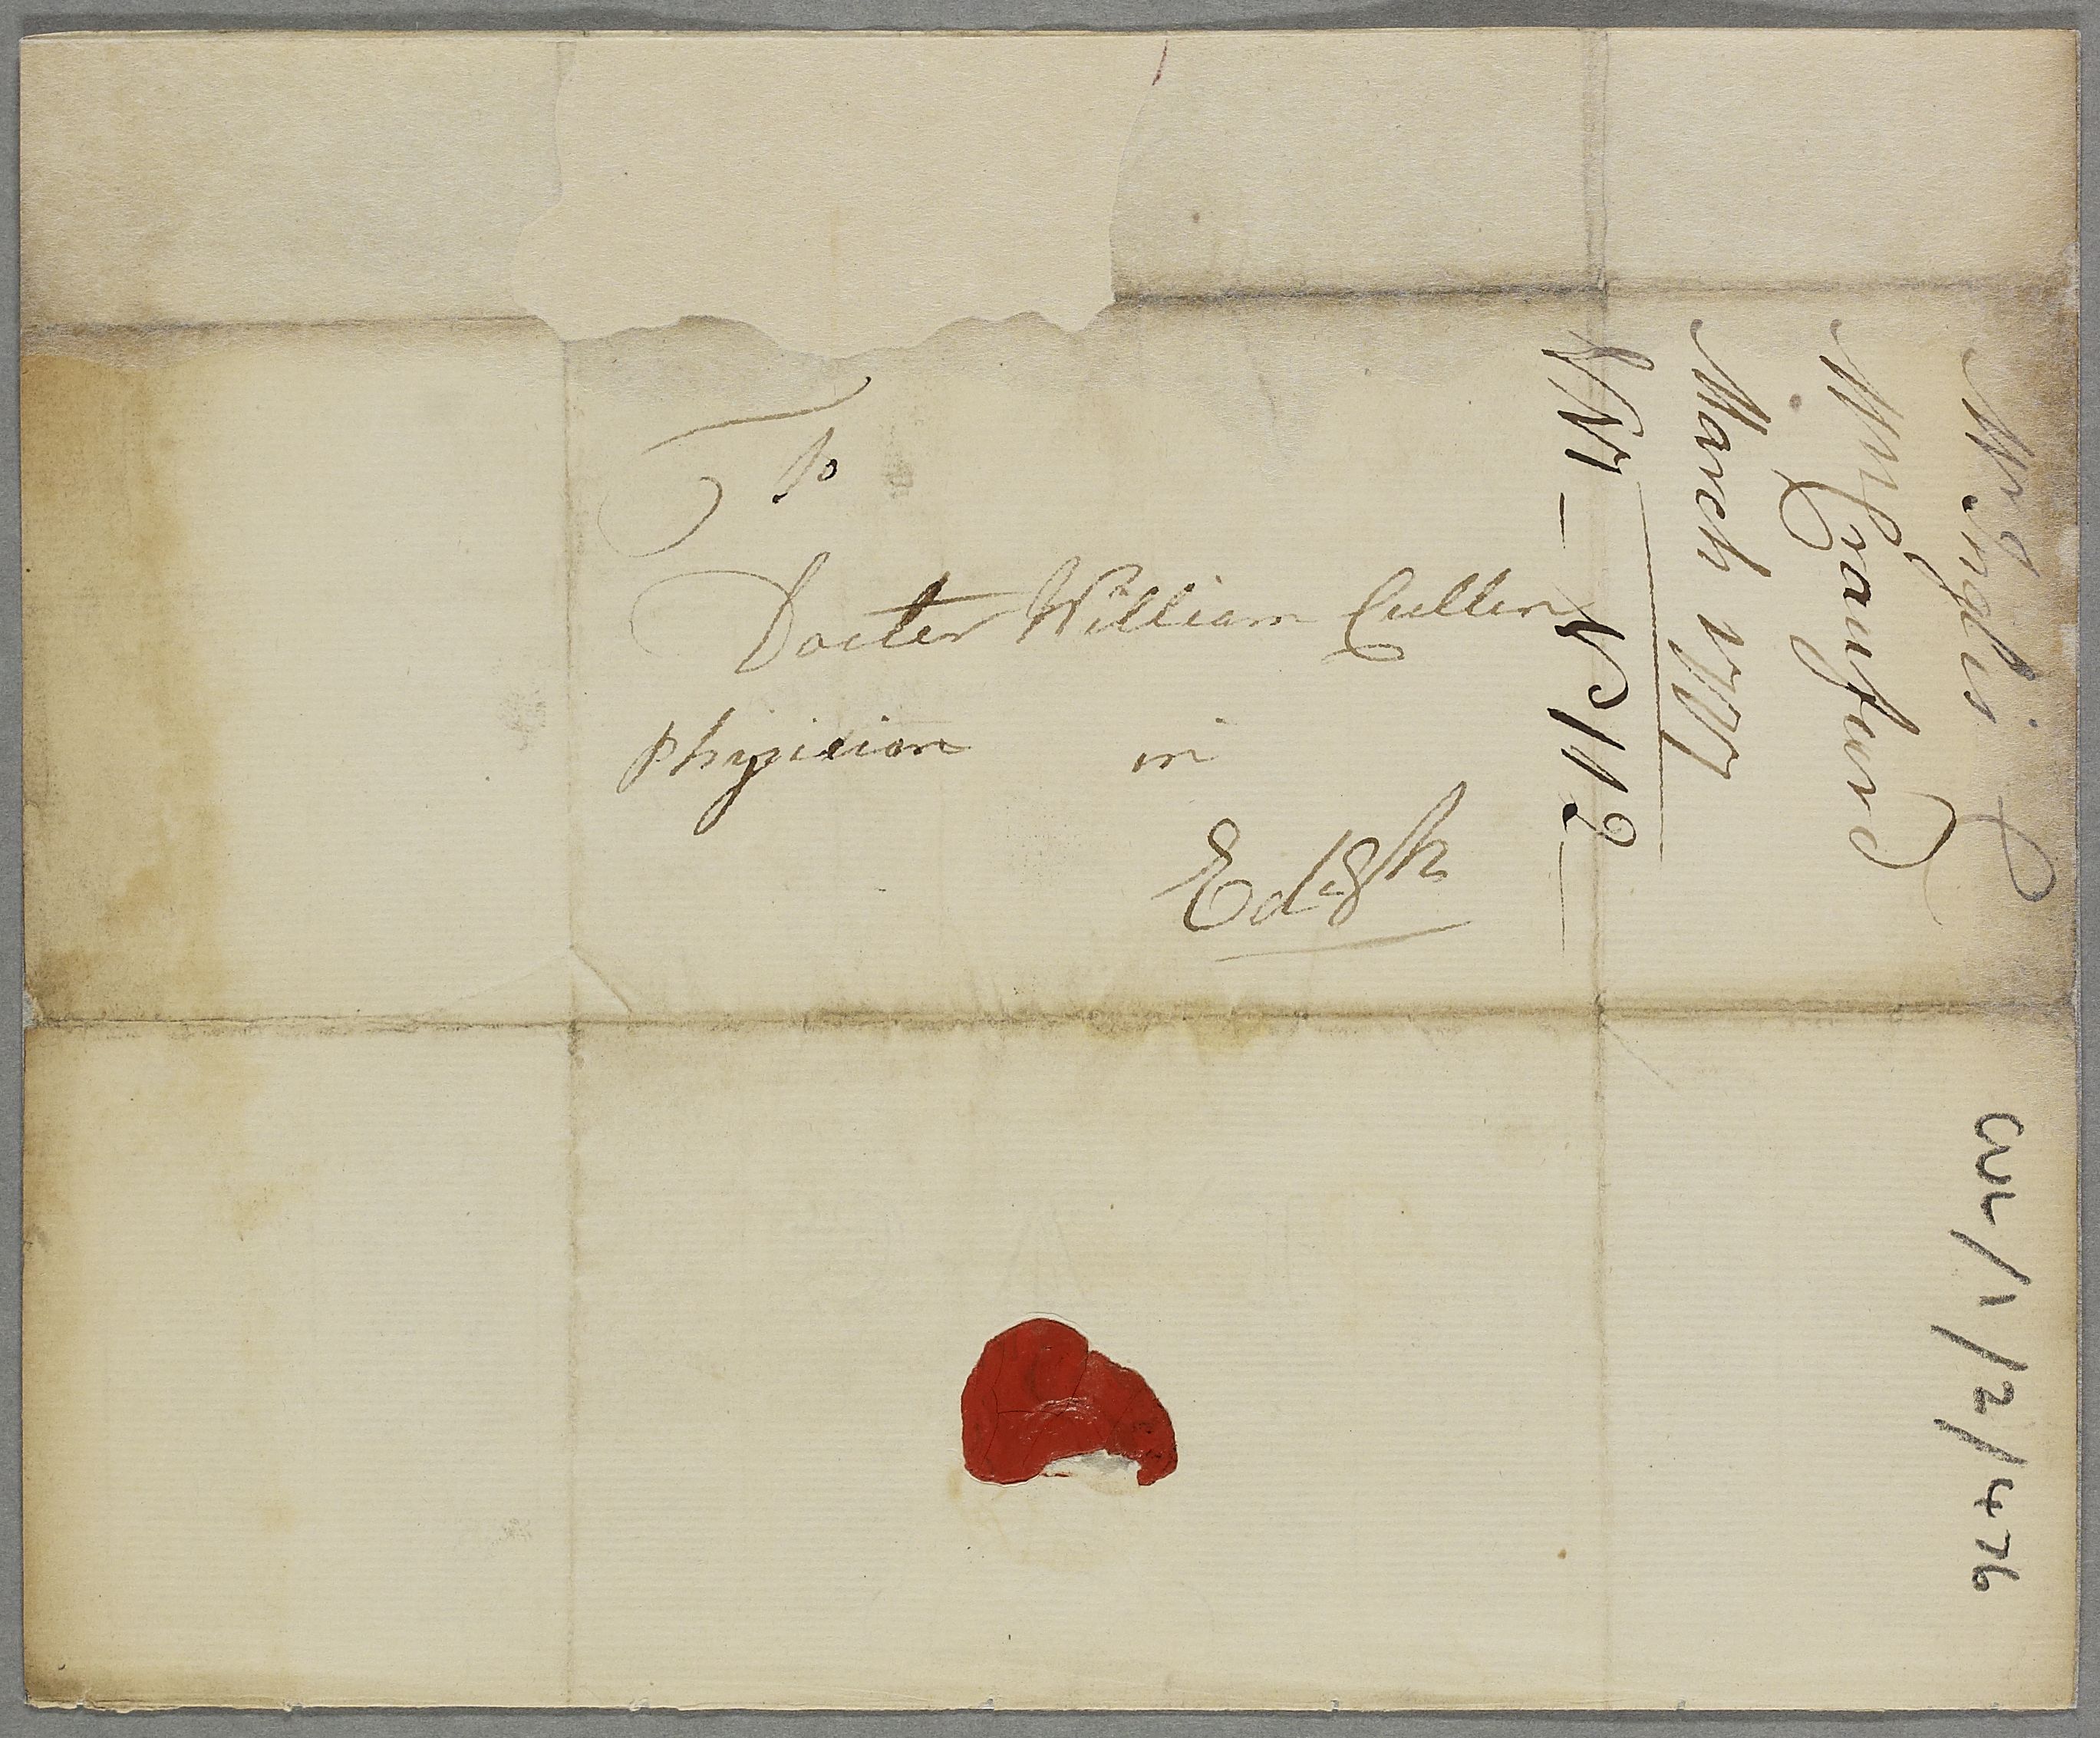 To
Docter William Cullen
Phyicion in
Edgh
Mr Inglis
Mr Craufurd
March 1777
V 17 – N 112 –
CUL/1/2/1476